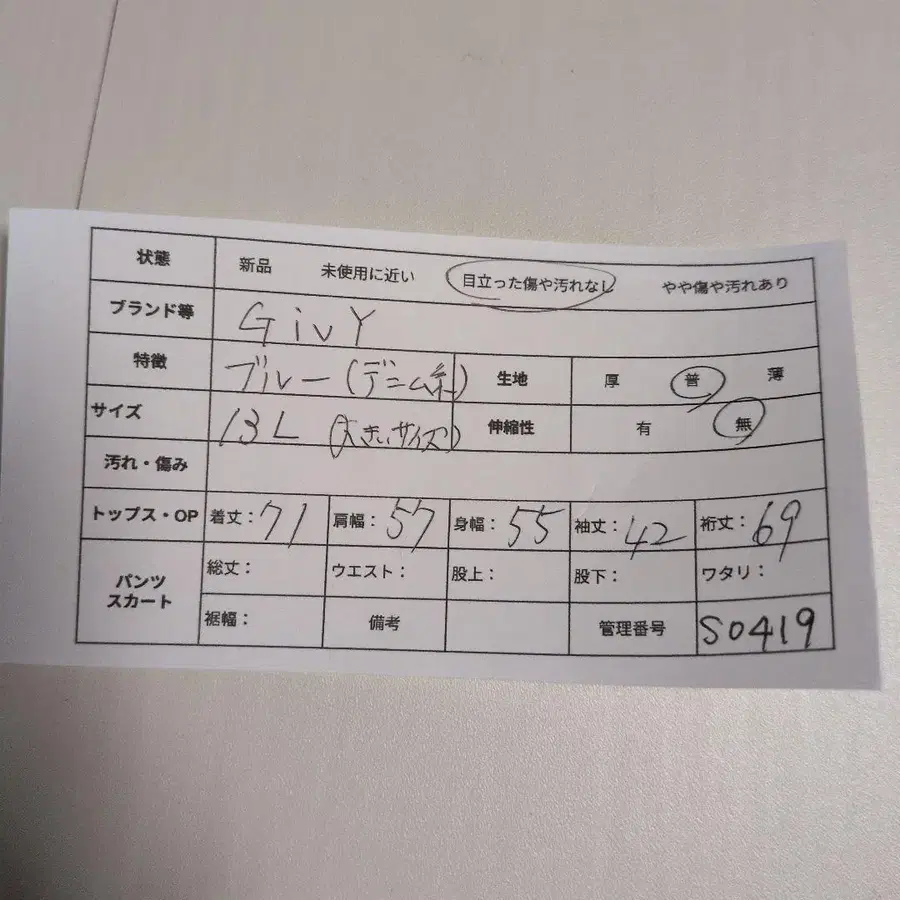 状態 新品 未使用に近い 目立った傷や汚れなし やや傷や汚れあり
ブランド等 GivY
特徴 ブルー(デニム系) 生地 厚 普 薄
サイズ 13L (大きいサイズ) 伸縮性 有 無
汚れ・傷み
トップス・OP 着丈:71 肩幅:57 身幅:55 袖丈:42 裄丈:69
パンツ スカート 総丈: ウエスト: 股上: 股下: ワタリ:
裾幅: 備考 管理番号 S0419